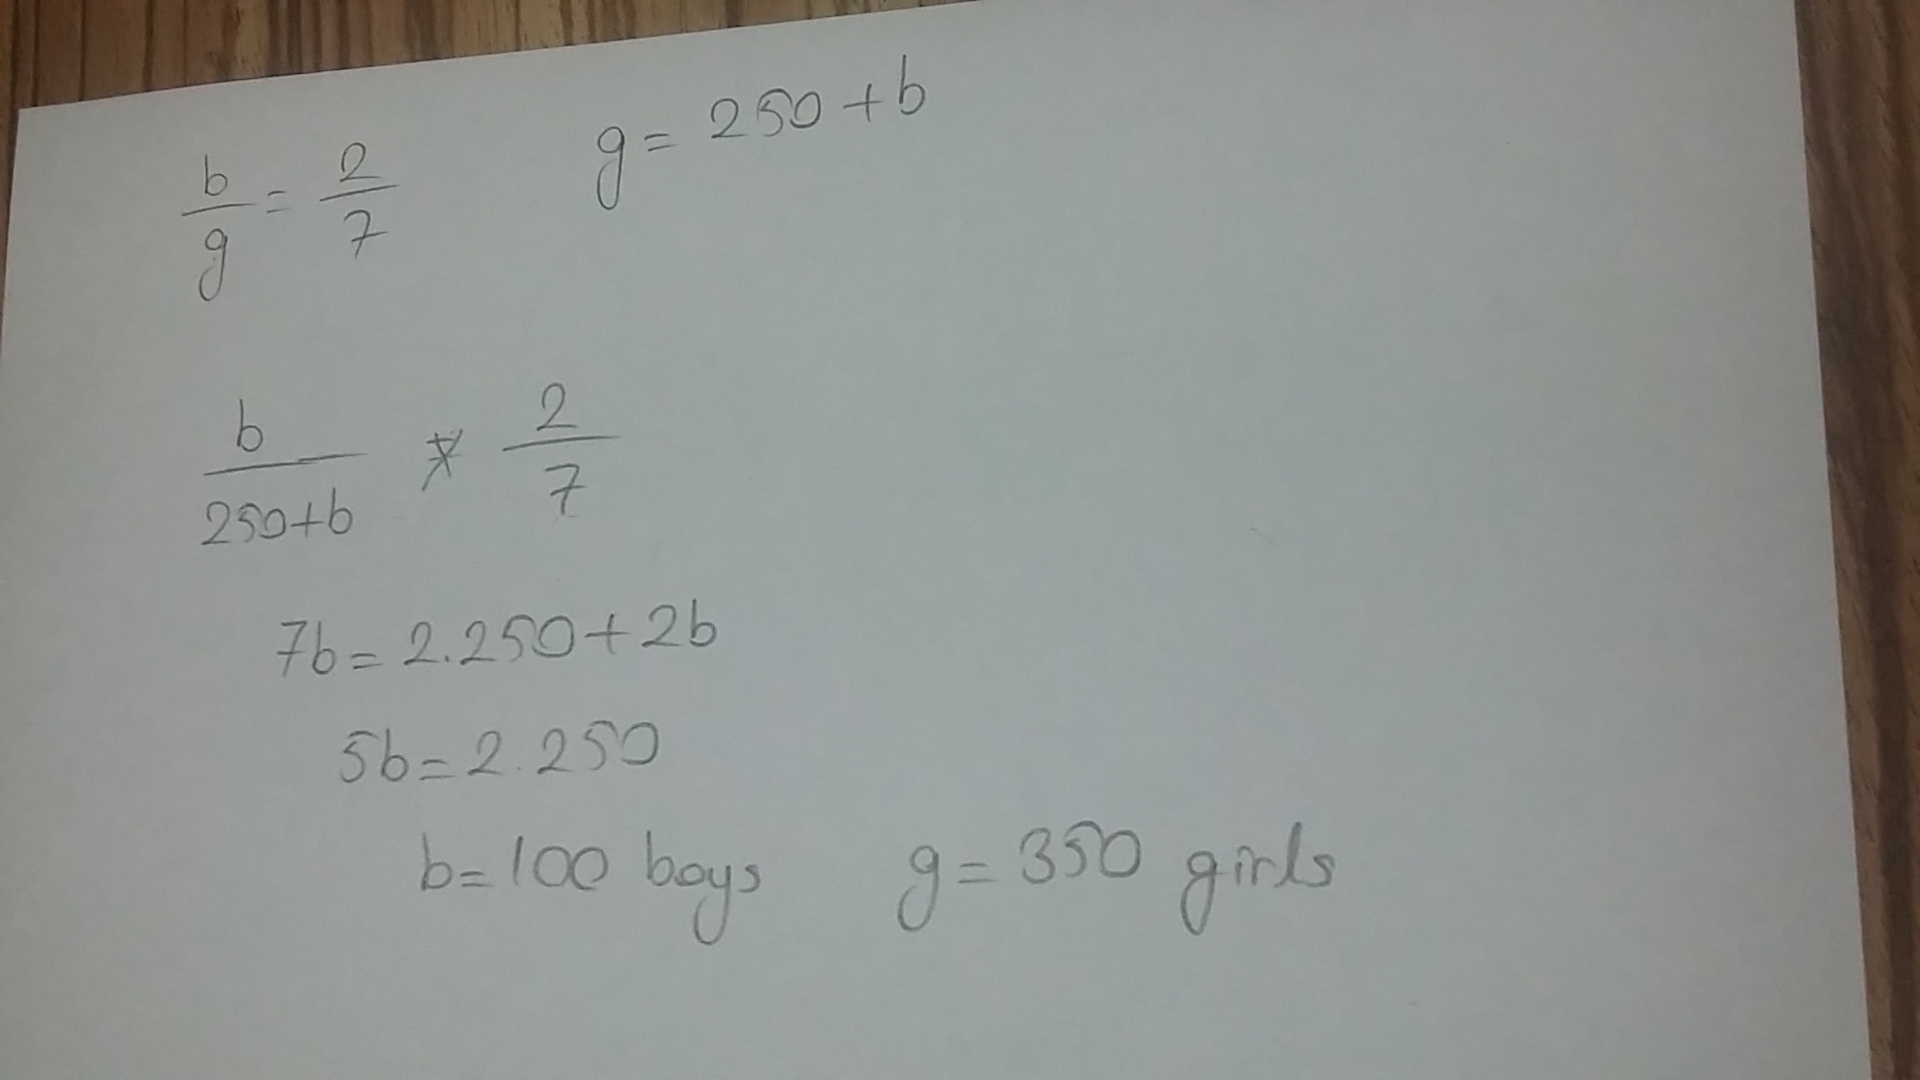 b/g = 2/7 g = 250 + b
b/(250+b) * 2/7
7b = 2.250 + 2b
5b = 2.250
b = 100 boys g = 350 girls